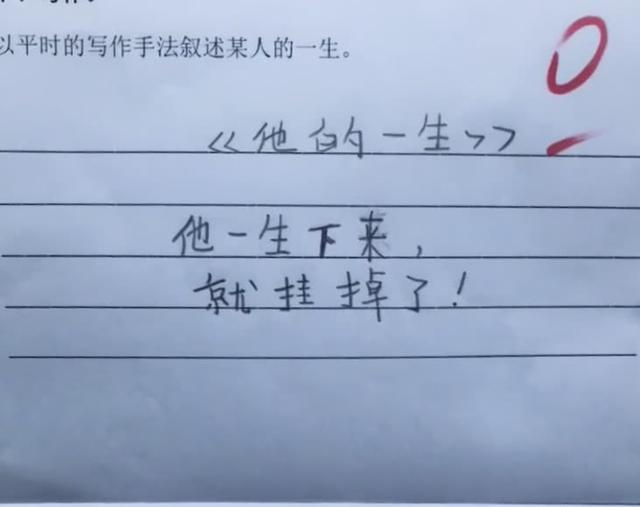 以平时的写作手法叙述某人的一生。
0
《他的一生》
他一生下来，
就挂掉了！